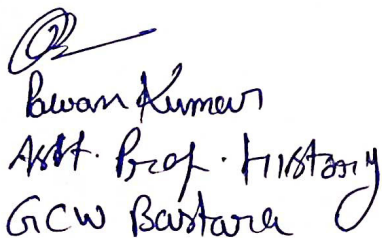 Pawan Kumar
Asstt. Prof. History
GCW Bastara